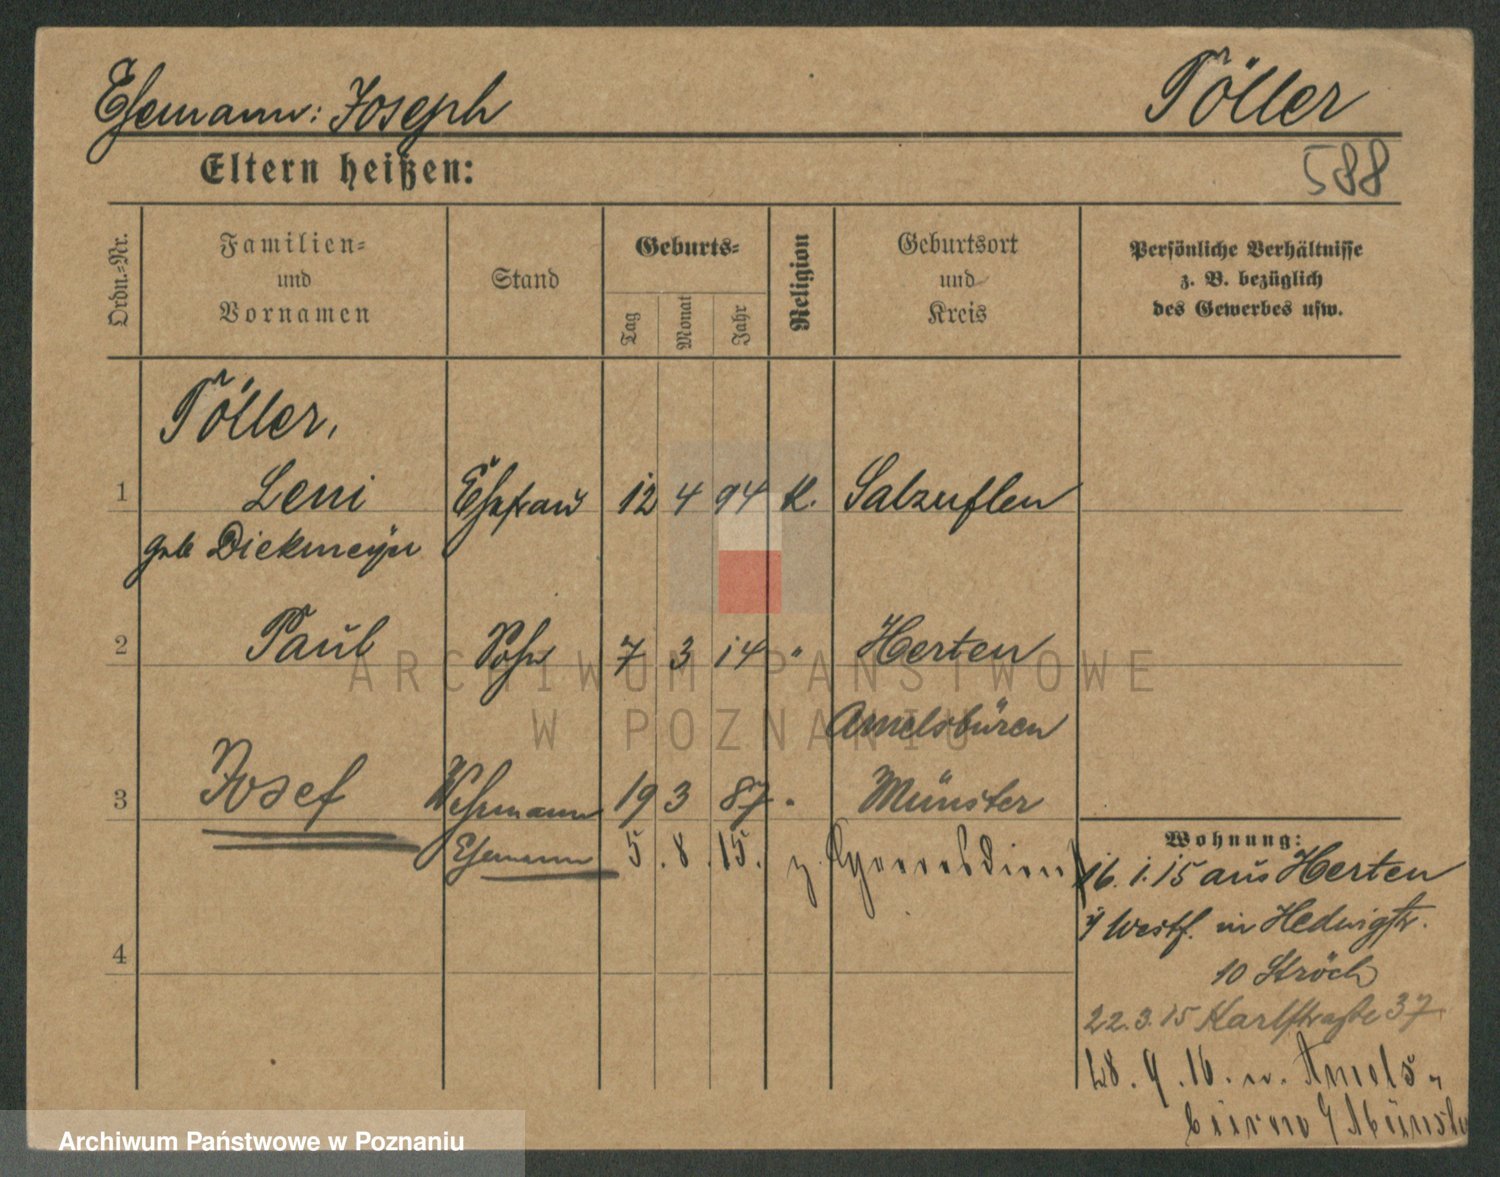 Ehemann: Joseph Töller
Eltern heißen: 588
Ordn.-Nr.
Familien-
und
Vornamen
Stand
Geburts-
Tag
Monat
Jahr
Religion
Geburtsort
und
Kreis
Persönliche Verhältnisse
z. B. bezüglich
des Gewerbes usw.
Töller,
1 Leni Ehefrau 12 4 94 K. Salzuflen
geb Diekmeyer
2 Paul Sohn 7 3 14 " Herten
Amelsbüren
3 Josef Wehrmann 19 3 87 " Münster
Ehemann 5. 8. 15. z. Heeresdienst
4
Wohnung:
16. 1. 15 aus Herten
i/ Westf. in Hedwigstr.
10 Ströch
22. 3. 15 Karlstraße 37
28. 9. 16. n. Amels-
büren Münster
ARCHIWUM PAŃSTWOWE
W POZNANIU
Archiwum Państwowe w Poznaniu